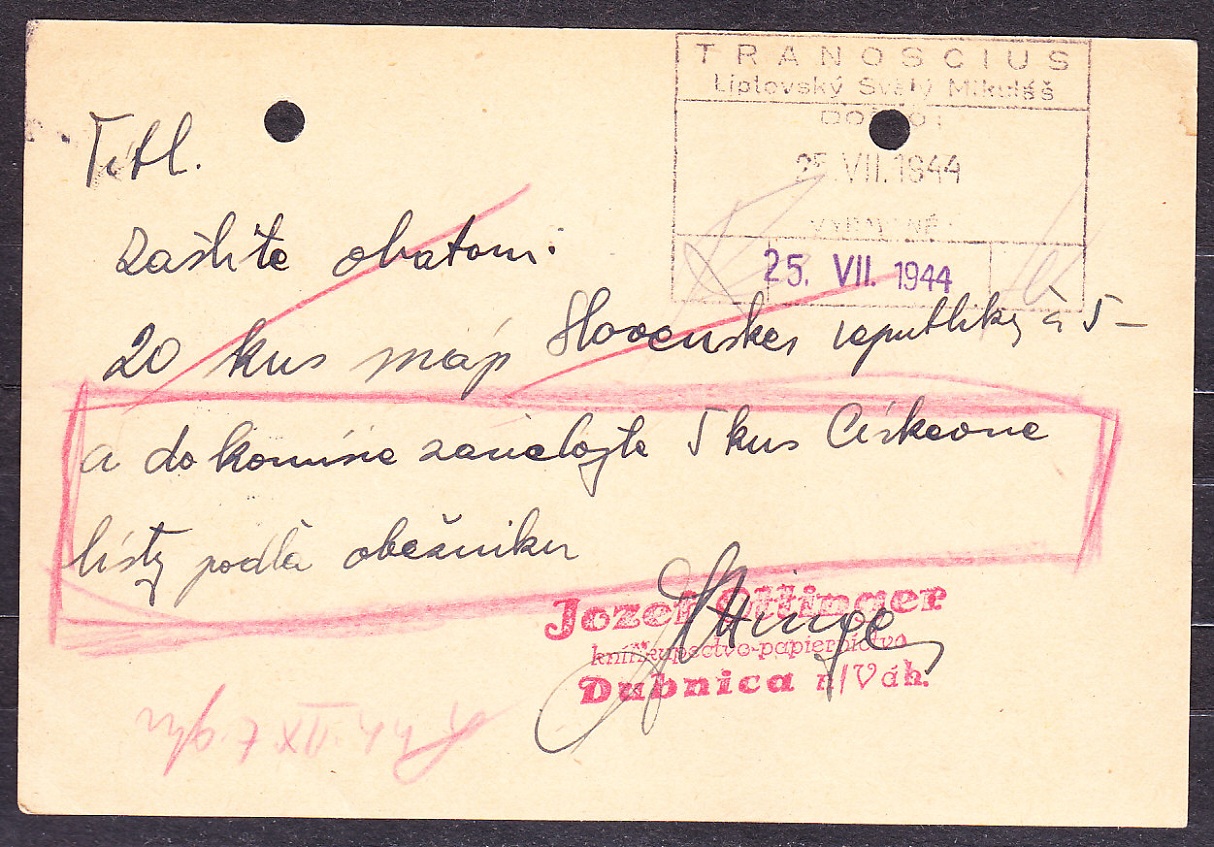 TRANOSCIUS
Liptovský Svätý Mikuláš
25. VII. 1944
25. VII. 1944
Titl.
Zašlite obatom:
20 kus máp Slovenskej republiky à 5–
a do komisie zasielajte 5 kus Cirkevne
listy podľa obežniku
Jozef Ottinger
kníhkupectvo-papiernictvo
Dubnica n/Váh.